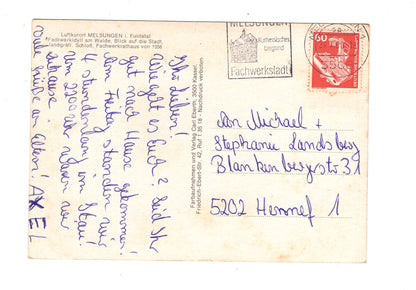 Luftkurort MELSUNGEN i. Fuldatal
Fachwerkidyll am Walde, Blick auf die Stadt,
Landgräfl. Schloß, Fachwerkrathaus von 1556
Ihr Lieben!
Wie geht es Euch? Seid Ihr
gut nach Hause gekommen!
Am Freitag standen wir
4 Stunden lang im Stau!
Um 22.00 Uhr waren wir
zuhause.
Viele Grüße an Eltern! AXEL
Farbaufnahmen und Verlag Carl Eberth, 3500 Kassel
Friedrich-Ebert-Str. 42, Ruf 1 35 18 - Nachdruck verboten
MELSUNGEN
Kurhessisches
Bergland
Fachwerkstadt
60
An Michael +
Stephanie Landsberg
Blankenbergerstr. 31
5202 Hennef 1